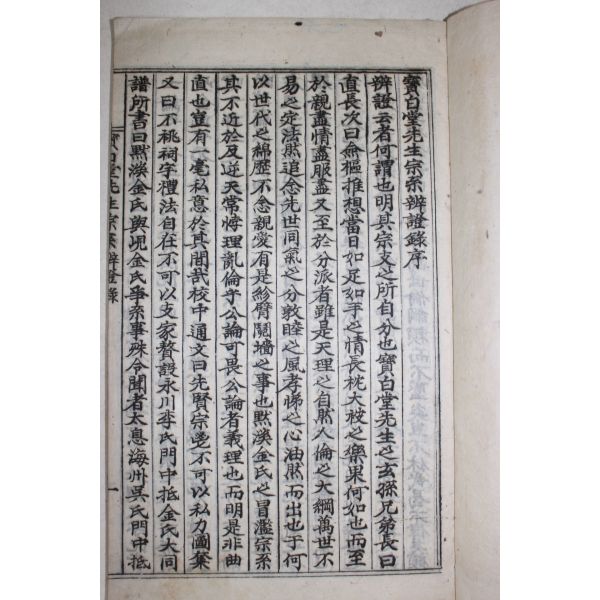 寶白堂先生宗系辨證錄序
辨證云者何謂也明其宗支之所自分也寶白堂先生之玄孫兄弟長曰
直長次曰僉樞推想當日如足如手之情長枕大被之樂果何如也而至
於親盡情盡服盡又至於分派者雖是天理之自然人倫之大綱萬世不
易之定法然追念先世同氣之分敦睦之風孝悌之心油然而出也于何
以世代之綿歷不念親愛有是紾臂鬩墻之事也默溪金氏之冒濫宗系
其不近於反逆天常悖理亂倫乎公論可畏公論者義理也而明是非曲
直也豈有一毫私意於其間哉校中通文曰先賢宗嗣不可以私力圖棄
又曰不祧祠字禮法自在不可以支家贅設永川李氏門中抵金氏大同
譜所書曰默溪金氏與峴金氏爭系事殊令聞者太息海州吳氏門中抵
寶白堂先生宗系辨證錄
一